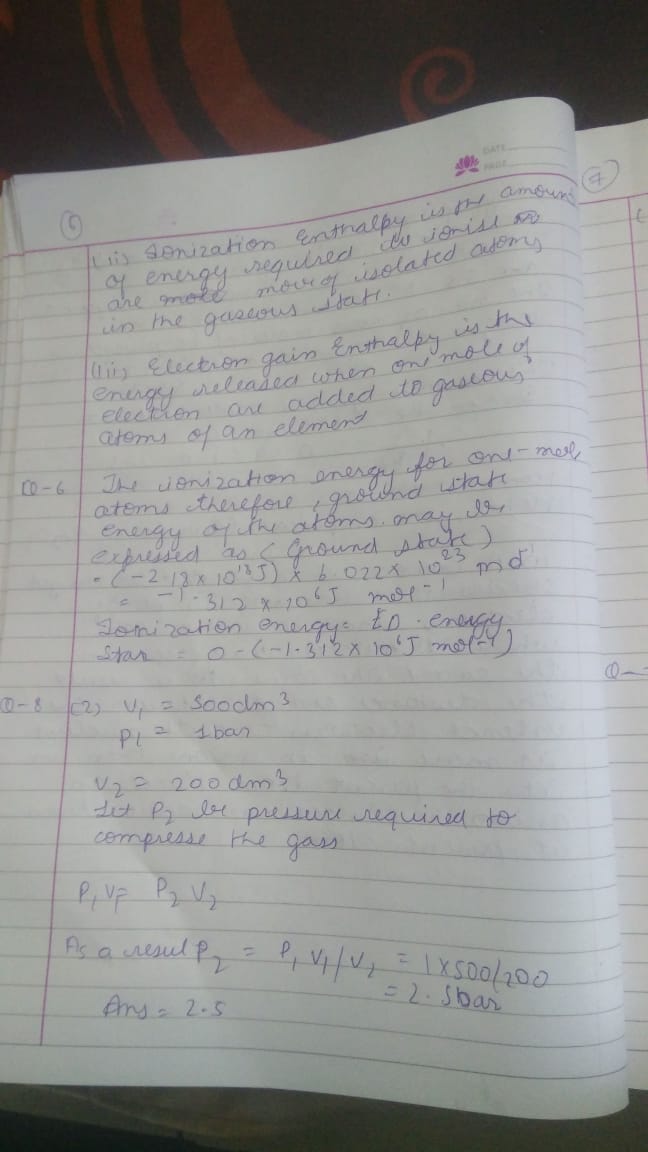 DATE
PAGE
6
7
(ii) Ionization Enthalpy is the amount
of energy required to ionise
are mole of isolated atoms
in the gaseous state.
(iii) Electron gain Enthalpy is the
energy released when one mole of
electron are added to gaseous
atoms of an element
Q-6 The ionization energy for one-mole
atoms therefore, ground state
energy of the atoms may be
expressed as (Ground state)
= (-2.18 x 10^18 J) x 6.022 x 10^23 mol
= -1.312 x 10^6 J mol^-1
Ionization energy = energy
Star = 0-(-1.312 x 10^6 J mol^-1)
Q-8 (2) V1 = 500dm^3
P1 = 1bar
V2 = 200 dm^3
Let P2 be pressure required to
compresse the gass
P1 V1= P2 V2
As a resul P2 = P1 V1/V2 = 1x500/200
= 2.5bar
Ans = 2.5
Q-